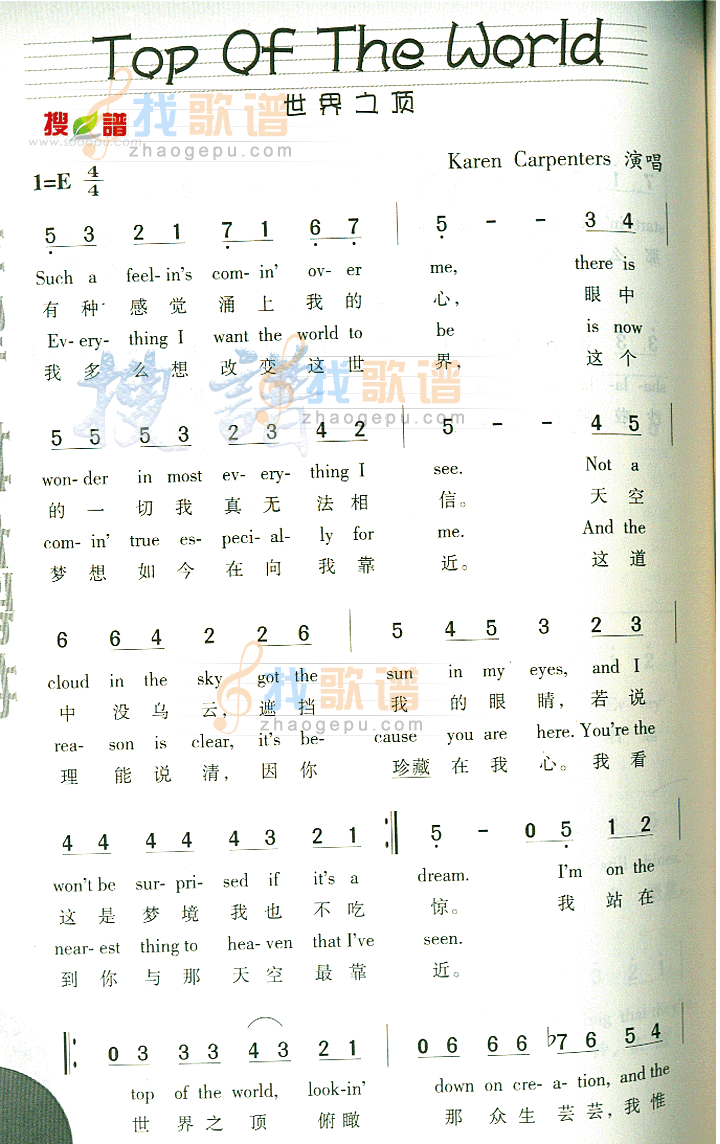 Top Of The World
世界之顶
搜谱
www.sooopu.com
找歌谱
zhaogepu.com
Karen Carpenters 演唱
1=E 4/4
5 3 2 1 7 1 6 7 | 5 - - 3 4
Such a feel-in's com-in' ov-er me, there is
有种感觉涌上我的心,眼中
Ev-ery-thing I want the world to be is now
我多么想改变这世界,这个
搜谱
找歌谱
zhaogepu.com
5 5 5 3 2 3 4 2 | 5 - - 4 5
won-der in most ev-ery-thing I see. Not a
的一切我真无法相信。天空
com-in' true es-pecial-ly for me. And the
梦想如今在向我靠近。这道
6 6 4 2 2 6 | 5 4 5 3 2 3
cloud in the sky got the sun in my eyes, and I
中没乌云,遮挡我的眼睛,若说
找歌谱
zhaogepu.com
rea-son is clear, it's be-cause you are here. You're the
理能说清,因你珍藏在我心。我看
4 4 4 4 4 3 2 1 :‖ 5 - 0 5 1 2
won't be sur-pri-sed if it's a dream. I'm on the
这是梦境我也不吃惊。我站在
near-est thing to hea-ven that I've seen.
到你与那天空最靠近。
‖: 0 3 3 3 4 3 2 1 | 0 6 6 6 ♭7 6 5 4
top of the world, look-in' down on cre-a-tion, and the
世界之顶俯瞰那众生芸芸,我惟